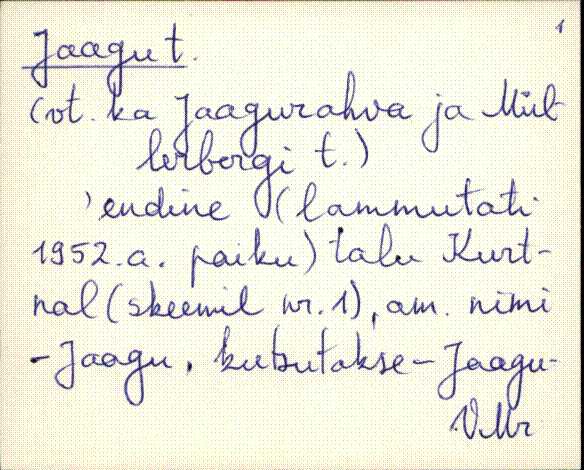 1
Jaagu t.
(vt. ka Jaagurahva ja Mül-
lerbergi t.)
'endine (lammutati
1952.a. paiku) talu Kurt-
nal (skeemil nr. 1), am. nimi
- Jaagu, kutsutakse - Jaagu.
VMr